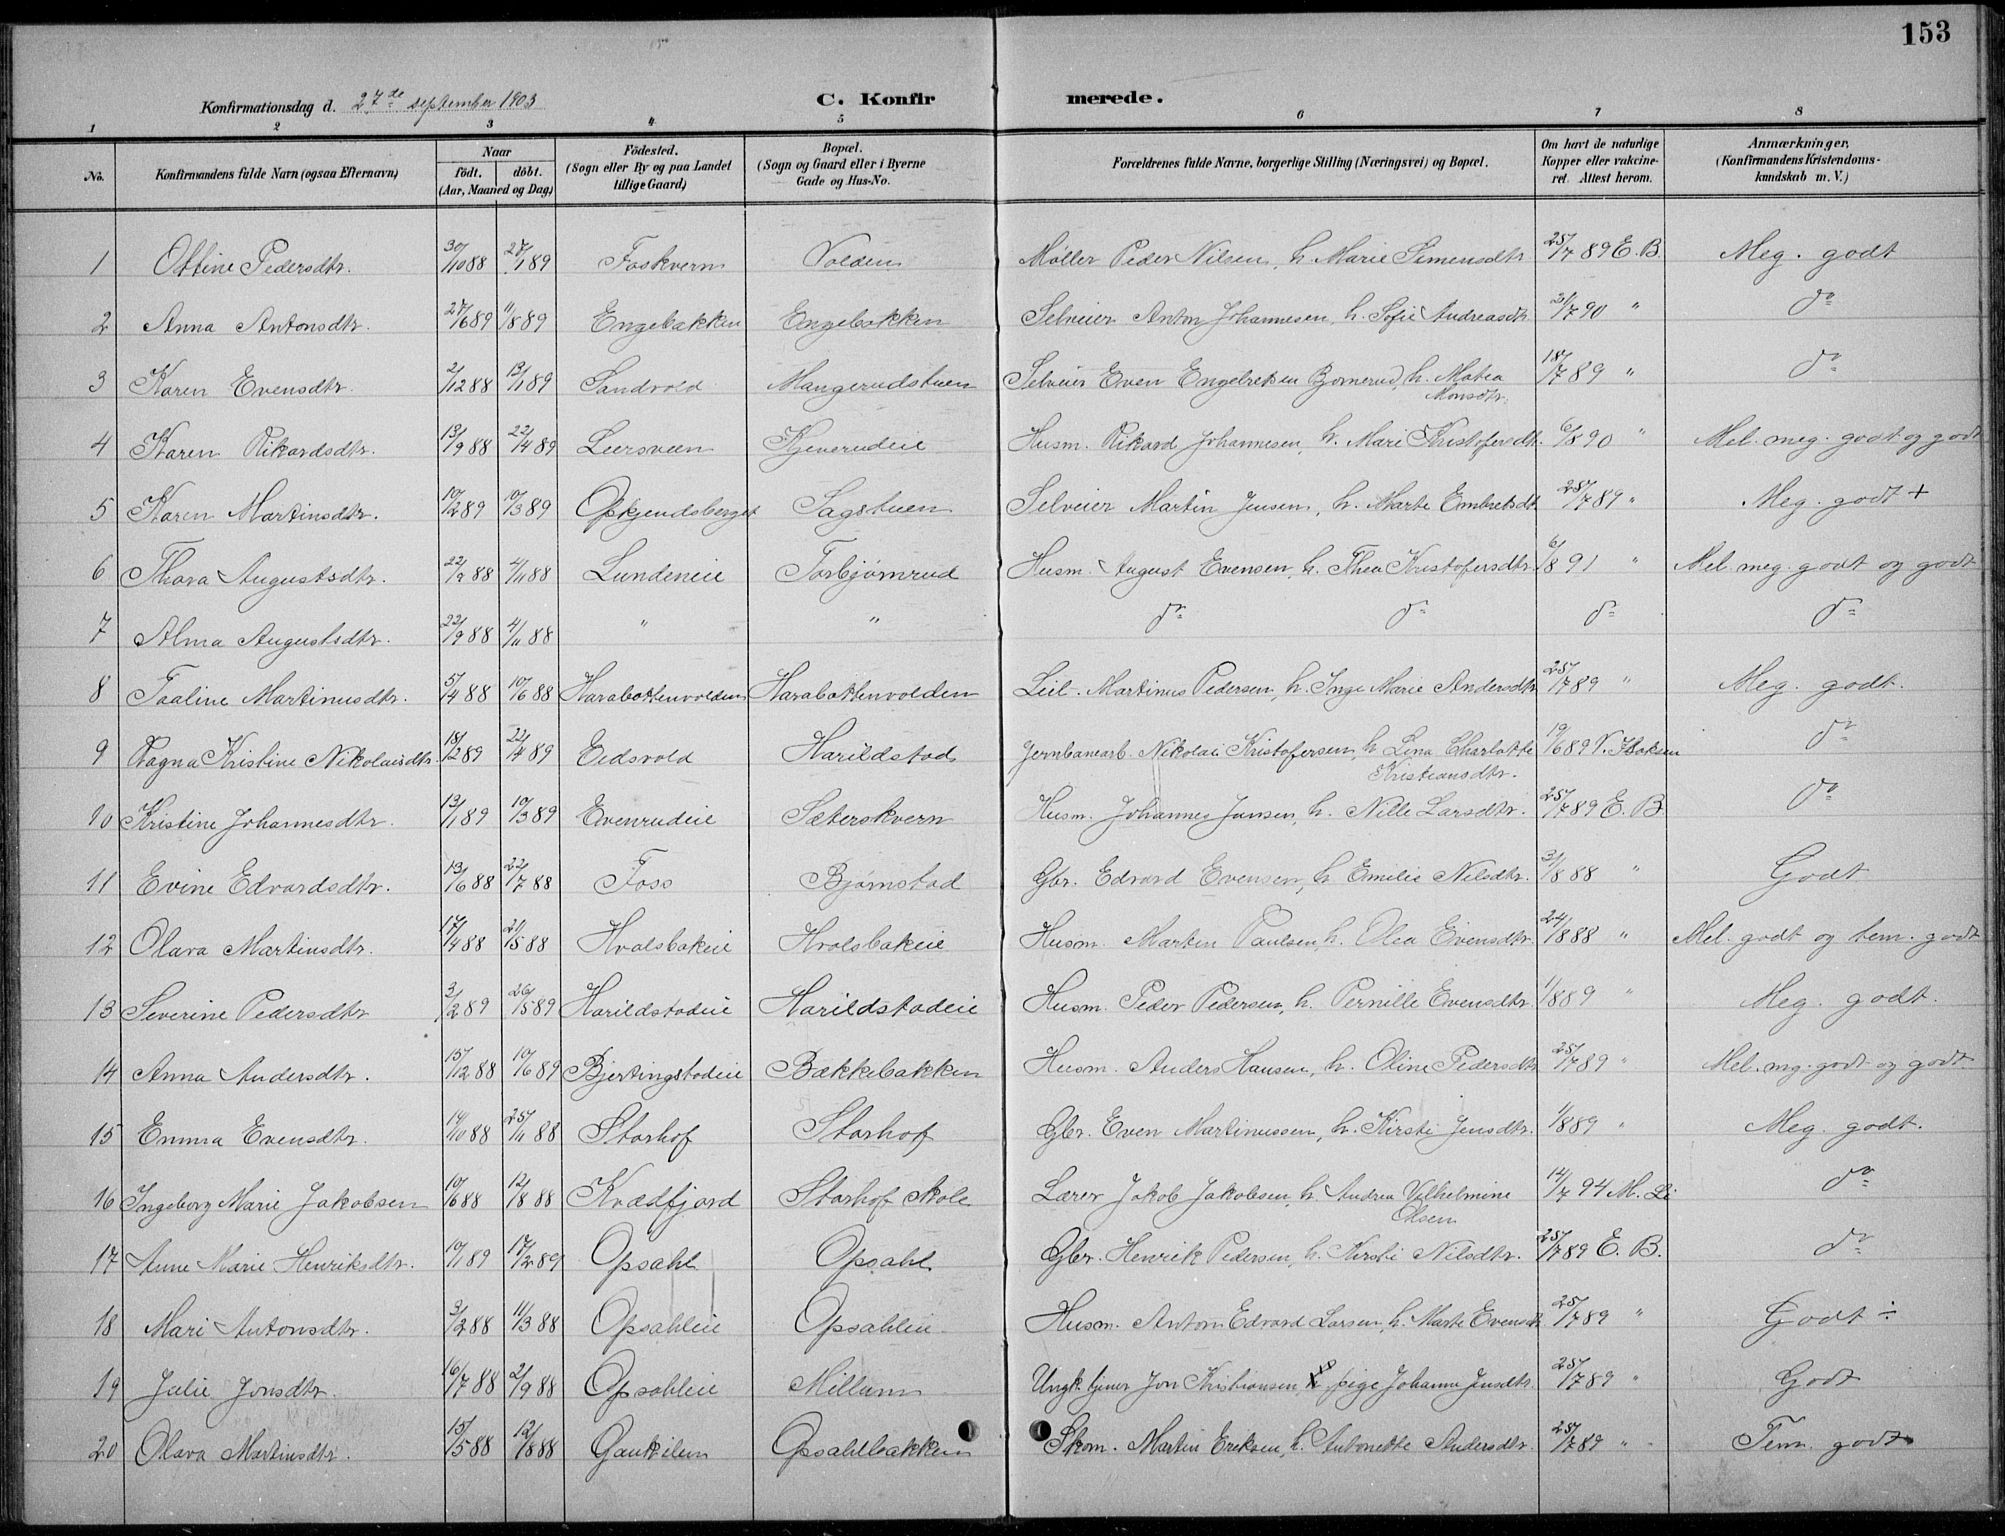 153
Konfirmationsdag d. 27de september 1903
C. Konfirmerede.
1 2 3 4 5 6 7 8
No.
Konfirmandens fulde Navn (ogsaa Efternavn)
Naar födt. döbt. (Aar, Maaned og Dag)
Födested. (Sogn eller By og paa Landet tillige Gaard)
Bopæl. (Sogn og Gaard eller i Byerne Gade og Hus-No.
Forældrenes fulde Navne, borgerlige Stilling (Næringsvei) og Bopæl.
Om havt de naturlige Kopper eller vakcineret. Attest herom.
Anmærkninger, (Konfirmandens Kristendomskundskab m. V.)
1 Ottine Pedersdtr. 30/10 88 27/1 89 Foskvern Volden Møller Peder Nilsen, h. Marie Simensdtr 25/7 89 E. B. Meg. godt
2 Anna Antonsdtr. 27/6 89 11/8 89 Engebakken Engebakken Selveier Anton Johannesen, h. Sofie Andreasdtr. 21/7 90 " do
3 Karen Evensdtr. 2/12 88 13/1 89 Sandvold Mangerudstuen Selveier Even Engebretsen Bjørnerud, h. Matea Monsdtr. 18/7 89 " do
4 Karen Rikardsdtr. 13/9 88 22/4 89 Leersveen Kjeverudeie Husm. Rikard Johannesen, h. Mari Kristofersdtr. 6/8 90 " Mel. meg. godt og godt
5 Karen Martinsdtr. 10/2 89 10/3 89 Opkjendsberget Sagstuen Selveier Martin Jensen, h. Marte Embretsdtr 25/7 89 " Meg. godt +
6 Thora Augustsdtr. 22/9 88 4/11 88 Lundeneie Torbjørnrud Husm. August Evensen, h. Thea Kristofersdtr. 6/8 91 " Mel. meg. godt og godt
7 Alma Augustsdtr. 22/9 88 4/11 88 " " do do do do
8 Taaline Martinusdtr. 5/4 88 10/6 88 Harabottenvolden Harabottenvolden Leil. Martinus Pedersen, h. Inge Marie Andersdtr 25/7 89 " Meg. godt.
9 Ragna Kristine Nikolaisdtr. 18/2 89 22/4 89 Eidsvold Harildstad Jernbanearb. Nikolai Kristofersen, h. Lina Charlotte Kristiansdtr. 19/6 89 V. Isaksen do
10 Kristine Johannesdtr. 13/1 89 10/3 89 Evenrudeie Sæterskvern Husm. Johannes Jansen, h. Nille Larsdtr. 25/7 89 E. B. do
11 Evine Edvardsdtr. 13/6 88 22/7 88 Foss Bjørnstad Gbr. Edvard Evensen, h. Emilie Nilsdtr. 31/8 88 " Godt
12 Olava Martinsdtr. 17/4 88 21/5 88 Hvalsbakeie Hvalsbakeie Husm. Martin Paulsen h. Olea Eivensdtr. 24/8 88 " Mel. godt og tem. godt
13 Severine Pedersdtr 3/2 89 26/5 89 Harildstadeie Harildstadeie Husm. Peder Pedersen, h. Pernille Evensdtr 1/8 89 " Meg. godt.
14 Anna Andersdtr. 15/12 88 10/6 89 Bjertingstadeie Bækkebakken Husm. Anders Hansen, h. Oline Pedersdtr 25/7 89 " Mel. mg. godt og godt
15 Emma Evensdtr. 14/10 88 25/11 88 Storhof Storhof Gbr. Even Martinussen, h. Kirsti Jensdtr. 1/8 89 " Meg. godt.
16 Ingeborg Marie Jakobsen 10/6 88 12/8 88 Kvædfjord Storhof skole Lærer Jakob Jakobsen, h. Andrea Vilhelmine Olsen 14/7 94 M. Li do
17 Anne Marie Henriksdtr. 10/1 89 17/2 89 Opsahl Opsahl Gbr. Henrik Pedersen, h. Kirsti Nilsdtr. 25/7 89 E. B. do
18 Mari Antonsdtr. 3/2 88 11/3 88 Opsahleie Opsahleie Husm. Anton Edvard Larsen, h. Marte Evensdtr 25/7 89 " Godt ÷
19 Julie Jonsdtr. 16/7 88 2/9 88 Opsahleie Millum Ungk. tjener Jon Kristiansen, pige Johanne Jensdtr. 25/7 89 " Godt
20 Olava Martinsdtr. 15/5 88 12/8 88 Gaukilen Opsahlbakken Skom. Martin Eriksen, h. Antonette Andersdtr. 25/7 89 " Tem. godt